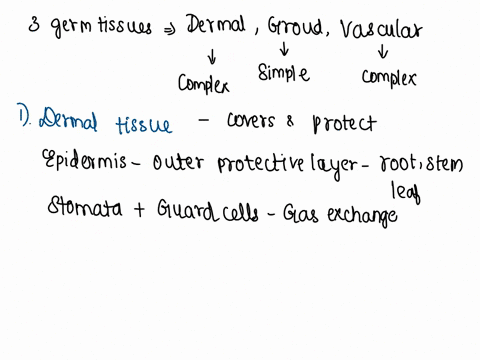 3 germ tissues ⇒ Dermal, Groud, Vascular
↓ ↓ ↓
Complex Simple Complex
1). Dermal tissue - covers & protect
Epidermis - outer protective layer - root, stem
leaf
Stomata + Guard cells - Gas exchange